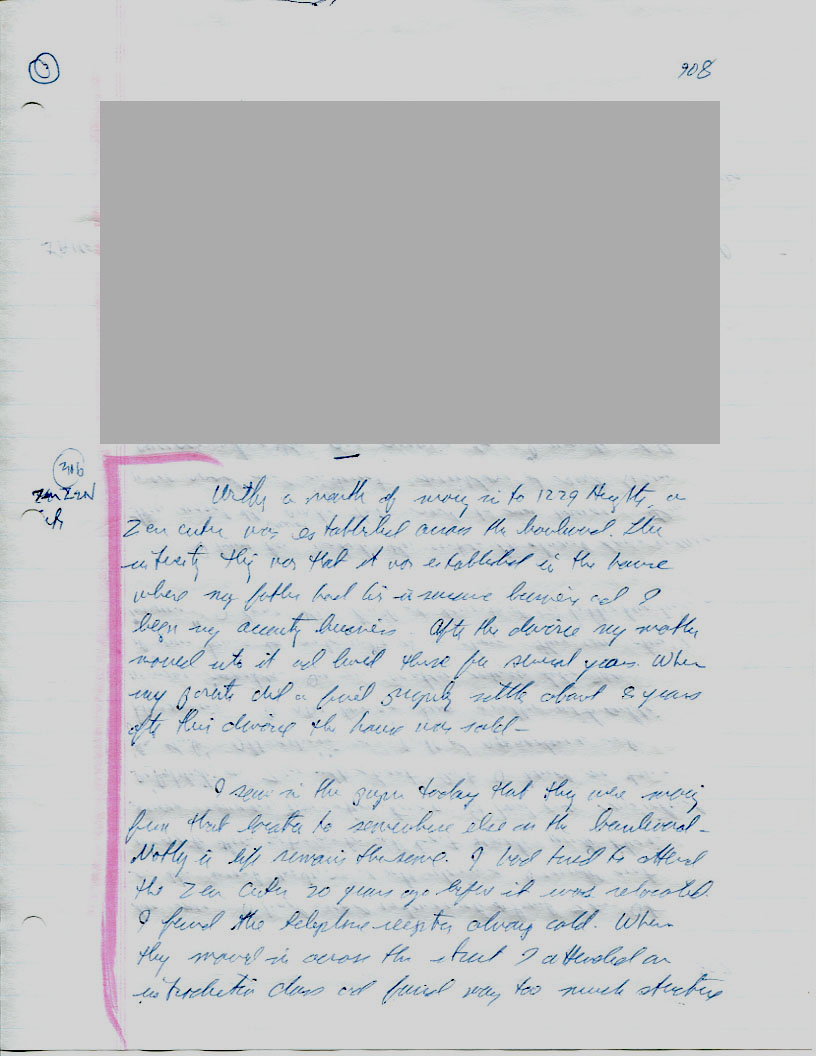 3
908
316
ZEN
Within a month of moving in to 1229 Heights, a
Zen center was established across the boulevard. The
interesting thing was that it was established in the house
where my father had his insurance business and I
began my accounting business. After the divorce my mother
moved into it and lived there for several years. When
my parents did a final property settle about 8 years
after their divorce the house was sold-
I saw in the paper today that they were moving
from that location to somewhere else on the boulevard-
Nothing in life remains the same. I had tried to attend
the Zen Center 20 years ago before it was relocated.
I found the telephone receptions always cold. When
they moved in across the street I attended an
introduction class and found way too much structure